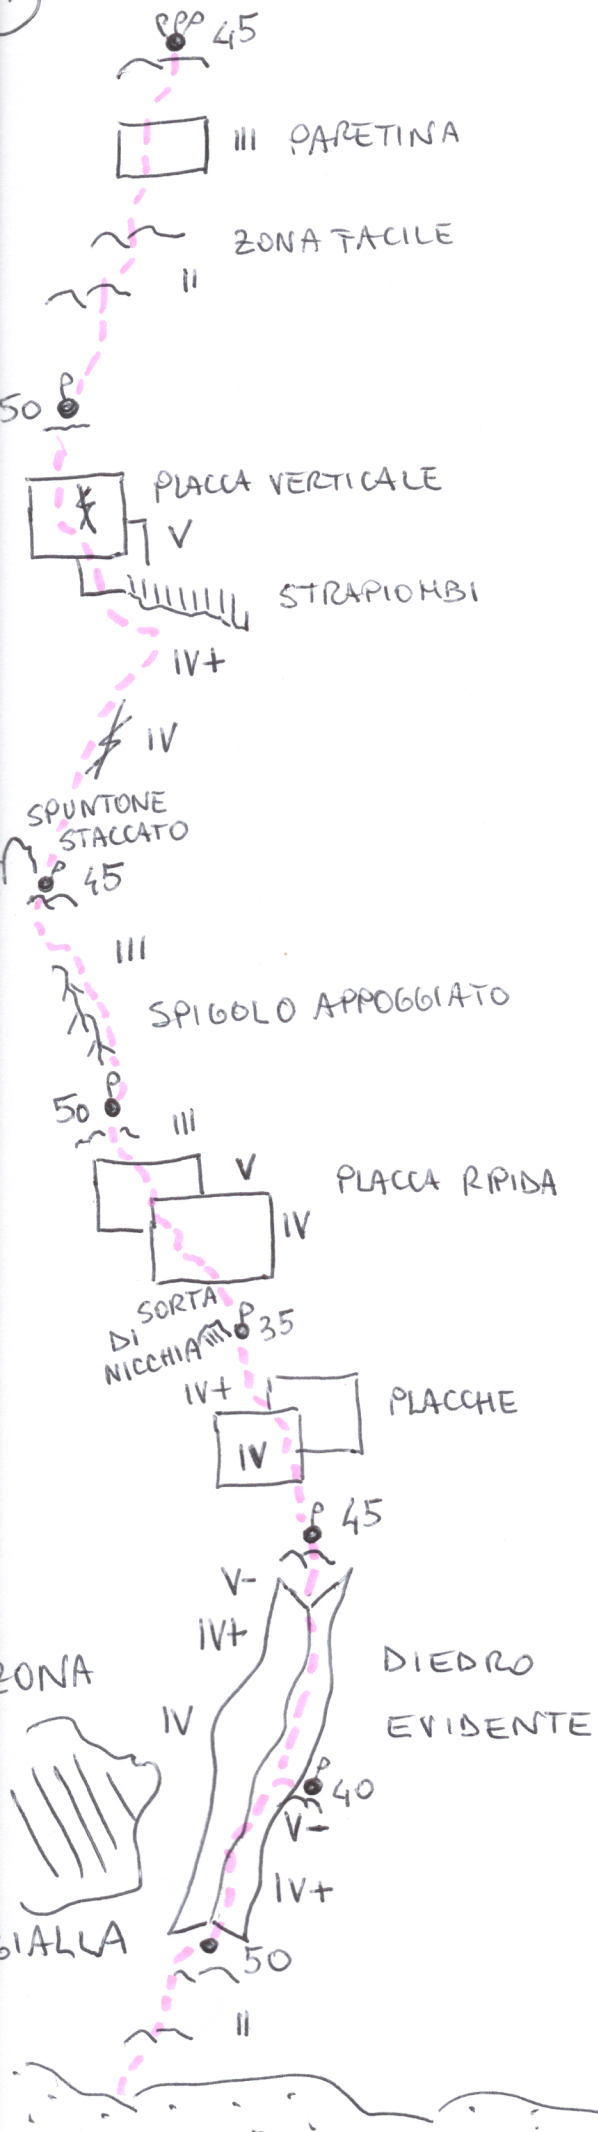 PPP 45
III PARETINA
ZONA FACILE
II
P
50
PLACCA VERTICALE
V
STRAPIOMBI
IV+
IV
SPUNTONE
STACCATO
P
45
III
SPIGOLO APPOGGIATO
P
50
III
V
PLACCA RIPIDA
IV
SORTA
DI
NICCHIA
P
35
IV+
PLACCHE
IV
P
45
V-
IV+
DIEDRO
EVIDENTE
ZONA
IV
P
40
V-
IV+
GIALLA
50
II